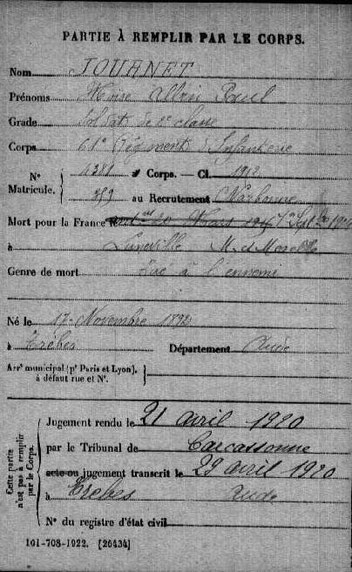 PARTIE À REMPLIR PAR LE CORPS.
Nom JOURNET
Prénoms Moïse Albin Paul
Grade Soldat de 2e classe
Corps 61e Régiment d'Infanterie
N° 4381 au Corps. — Cl. 1912
Matricule. 789 au Recrutement Narbonne
Mort pour la France le
à Lunéville M. et Moselle
Genre de mort Tué à l'ennemi
Né le 17 Novembre 1892
à Trèbes Département Aude
Arrt municipal (pr Paris et Lyon), à défaut rue et N°.
Cette partie n'est pas à remplir par le Corps.
Jugement rendu le 21 avril 1920
par le Tribunal de Carcassonne
acte ou jugement transcrit le 29 avril 1920
à Trèbes Aude
N° du registre d'état civil
101-708-1922. [26434]